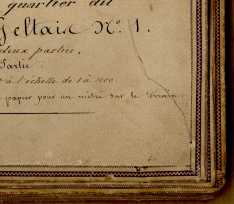 quartier du
Geltais N.° 1.
deux parties,
Partie
à l'échelle de 1 à 1000
papier pour un mètre sur le terrain